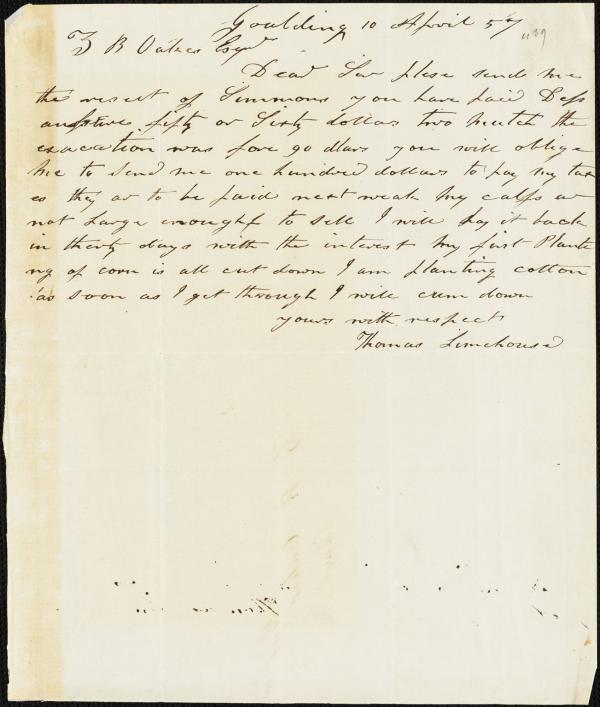 Goulding 10 April 57
Z B Oakes Esqr
Dear Sur plese send me
the resect of Simmons you have paid Dess
fifty or Sixty dollars two mutch the
exacation was fore 90 dlars you will oblige
me to send me one hundred dollars to pay my tax
es they ar to be paid next weak my calfs ar
not large enought to sell I will pay it back
in therty days with the interest my first Plante
ng of corn is all cut down I am planting cotton
as soon as I get through I will cum down
yours with respect
Thomas Limehouse